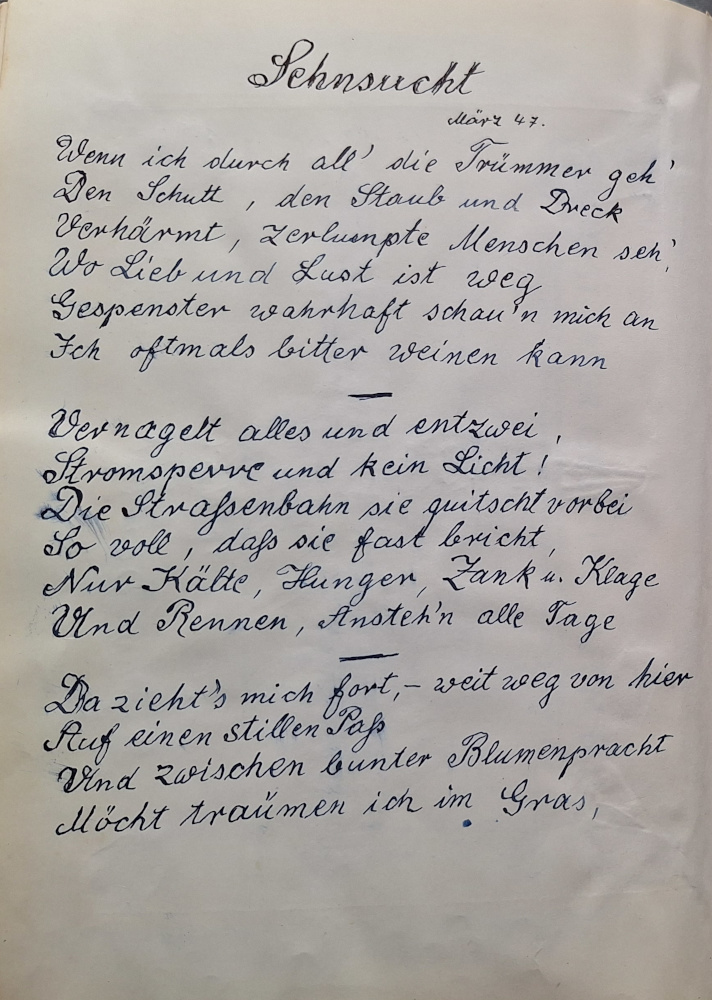 Sehnsucht
März 47.
Wenn ich durch all' die Trümmer geh'
Den Schutt, den Staub und Dreck
Verhärmt, zerlumpte Menschen seh',
Wo Lieb und Lust ist weg
Gespenster wahrhaft schau'n mich an
Ich oftmals bitter weinen kann
Vernagelt alles und entzwei,
Stromsperre und kein Licht!
Die Straßenbahn sie quitscht vorbei
So voll, daß sie fast bricht,
Nur Kälte, Hunger, Zank u. Klage
Und Rennen, Ansteh'n alle Tage
Da zieht's mich fort,- weit weg von hier
Auf einen stillen Paß
Und zwischen bunter Blumenpracht
Möcht traümen ich im Gras,